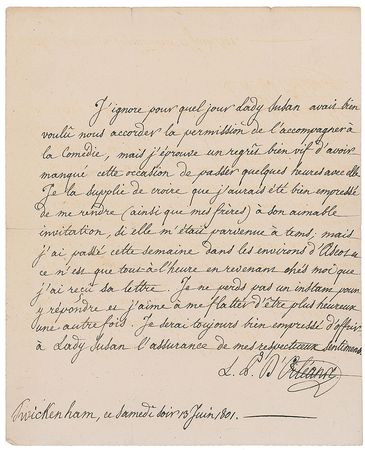 J'ignore pour quel jour Lady Susan avais bien
voulû nous accorder la permission de l'accompagner à
la Comédie, mais j'éprouve un regrêt bien vif d'avoir
manqué cette occasion de passer quelques heures avec elle.
Je la supplie de croire que j'aurais été bien empressé
de me rendre (ainsi que mes frères) à son aimable
invitation, si elle m'était parvenue à tems; mais
j'ai passé cette semaine dans les environs
ce n'est que tout-à-l'heure en revenant chés moi que
j'ai reçu sa lettre. Je ne perds pas un instant pour
y répondre et j'aime à me flatter d'être plus heureux
une autre fois. Je serai toujours bien empressé d'offrir
à Lady Susan l'assurance de mes respectueux sentimens
L. P. D'Orléans
Twickenham, ce Samedi soir 13 Juin 1801.